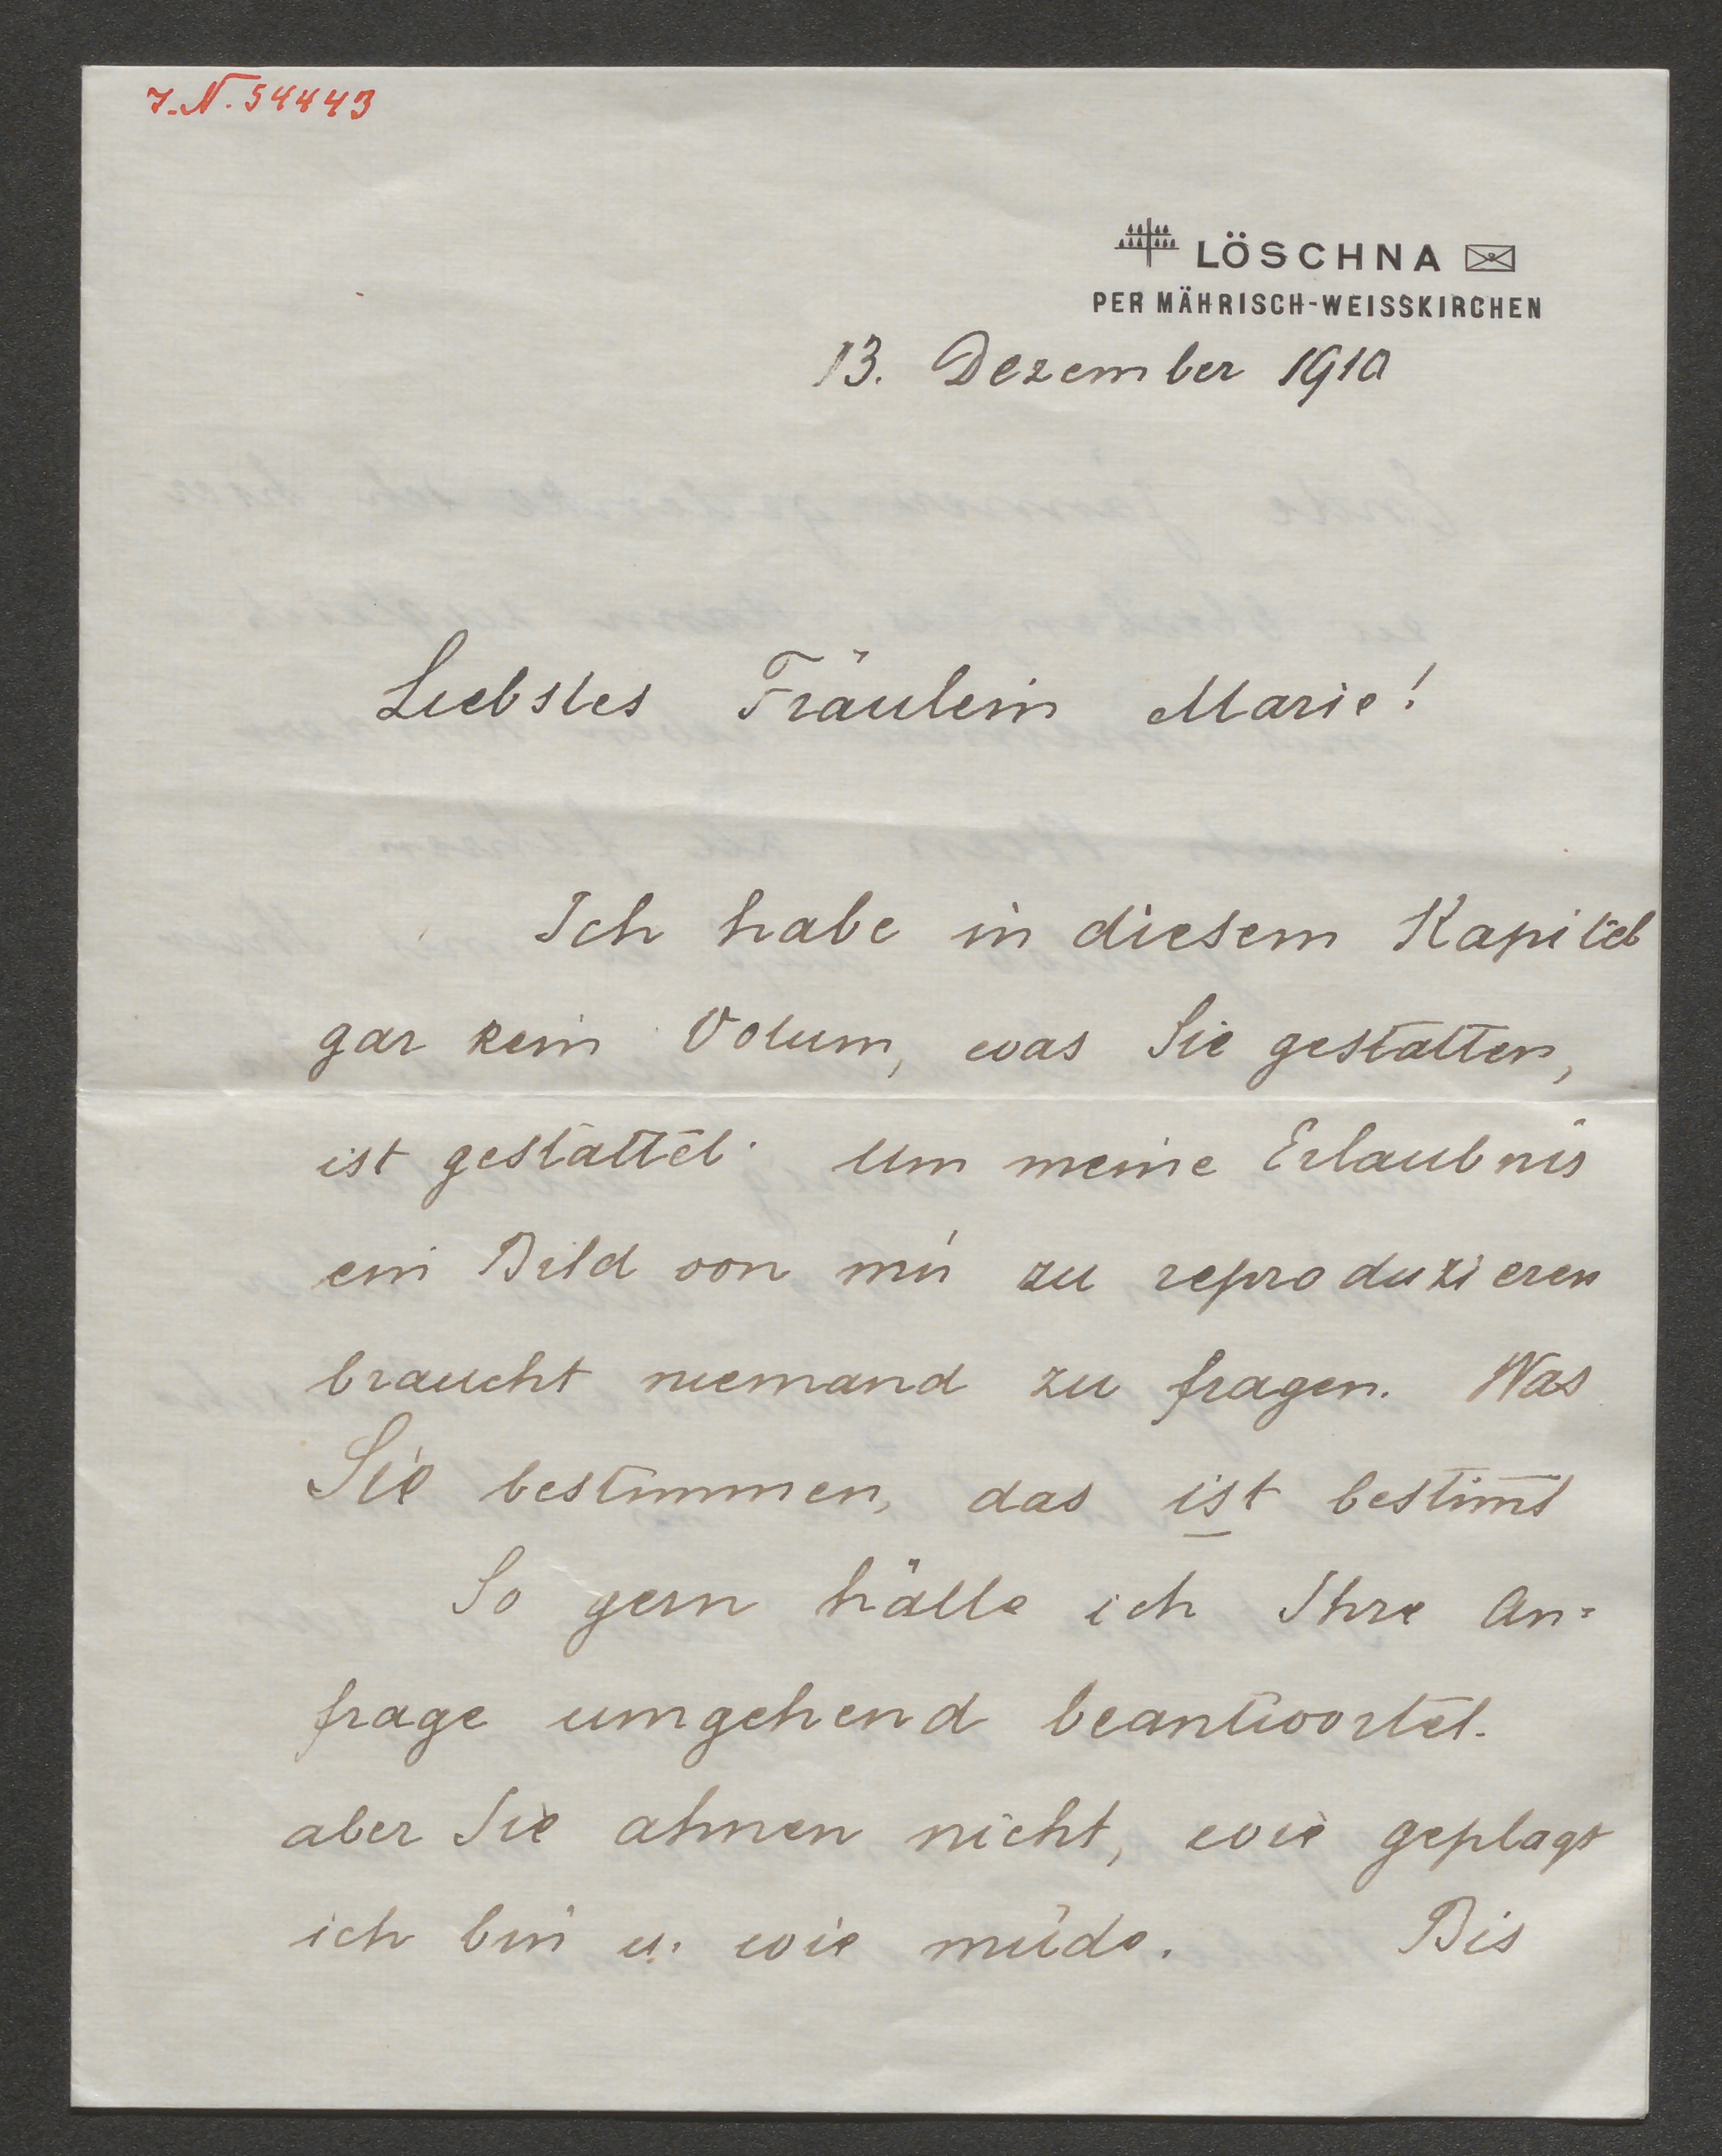 I.N. 54443
LÖSCHNA
PER MÄHRISCH-WEISSKIRCHEN
13. Dezember 1910
Liebstes Fräulein Marie!
Ich habe in diesem Kapitel
gar kein Votum, was Sie gestatten,
ist gestattet. Um meine Erlaubnis
ein Bild von mir zu reproduzieren
braucht niemand zu fragen. Was
Sie bestimmen, das ist bestim̅t
So gern hätte ich Ihre An=
frage umgehend beantwortet.
aber Sie ahnen nicht, wie geplagt
ich bin u. wie müde. Bis